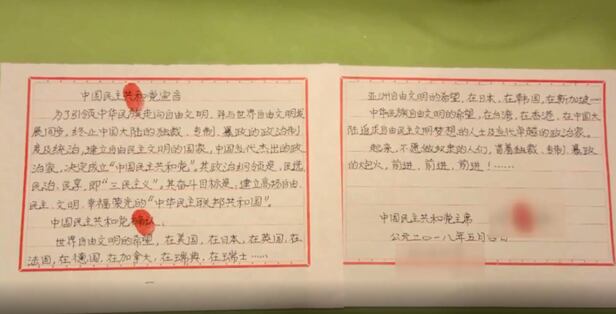 中国民主共和党宣言
为了引领中华民族走向自由文明，并与世界自由文明发
展同步，终止中国大陆的独裁、专制、暴政的政治制
度及统治，建立自由民主文明的国家，中国当代杰出的政
治家，决定成立“中国民主共和党”。其政治纲领是，民选
民治、民享，即“三民主义”。其奋斗目标是，建立高扬自由、
民主、文明、幸福荣光的“中华民主联邦共和国”。
中国民主共和党
世界自由文明的希望，在美国，在日本，在英国，在
法国，在德国，在加拿大，在瑞典，在瑞士……
一
亚洲自由文明的希望，在日本，在韩国，在新加坡…
中华民族自由文明的希望，在台湾，在香港，在中国大
陆追求自由民主文明梦想的人士及当代卓越的政治家。
起来，不愿做奴隶的人们，冒着独裁、专制、暴政
的炮火，前进，前进，前进！……
中国民主共和党主席
公元二〇一八年五月